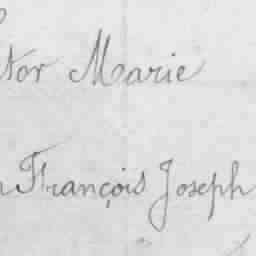 tor Marie
François Joseph